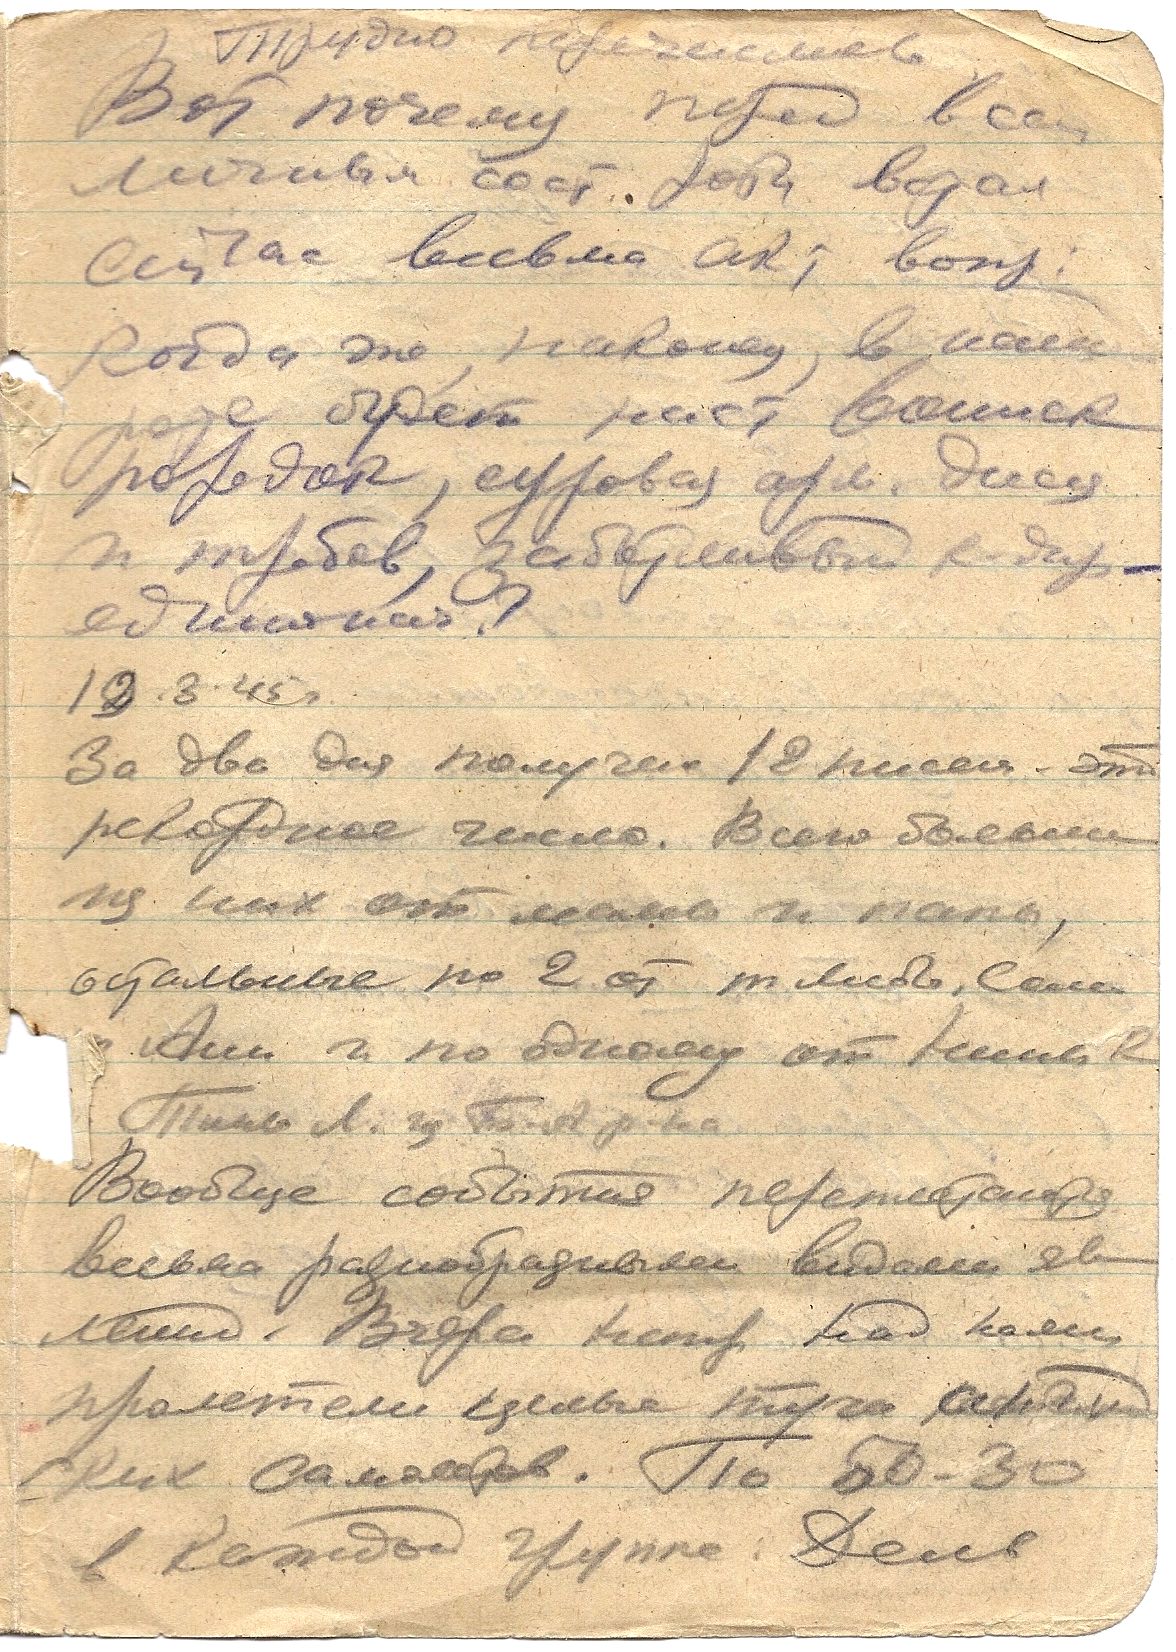 Трудно перечислять
Вот почему перед всем
личным сост. роты встал
сейчас весьма акт вопр:
когда же, наконец, в наш
роте будет наст воинск
порядок, суровая арм. дисц
и требов, заботливый к-дир-
единонач.?
12.3.45г.
За два дня получил 12 писем - это
рекордное число. Всего больше
из них от мамы и папы,
остальные по 2 от т Любы, Сани
и Ани и по одному от Нины К
Тины Л. и
Вообще события переплетаются
весьма разнообразными видами яв
лений. Вчера напр над нами
пролетели целые туча
ских самолетов. По 50-30
в каждой группе. День